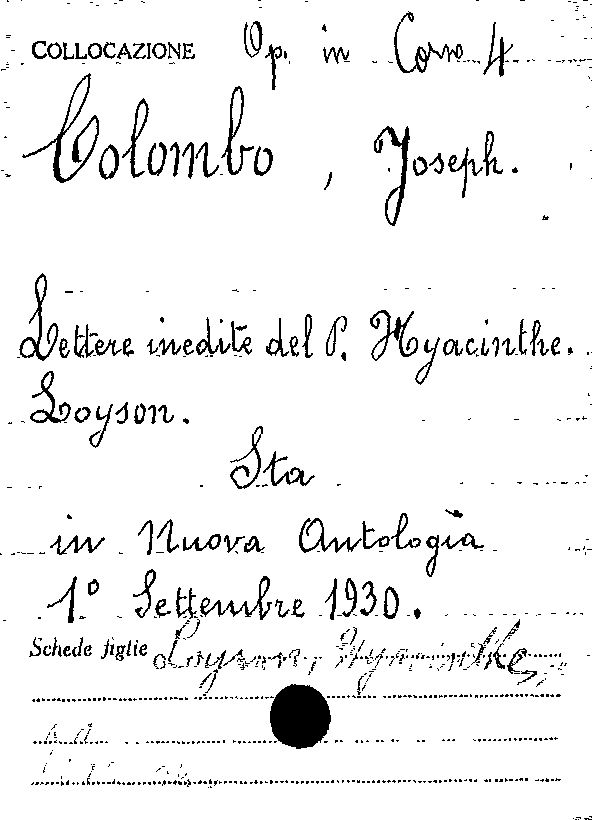 COLLOCAZIONE Op. in Corso 4
Colombo, Joseph.
Lettere inedite del P. Hyacinthe.
Loyson.
Sta
in Nuova Antologia
1º Settembre 1930.
Schede figlie Loyson, Hyacinthe,